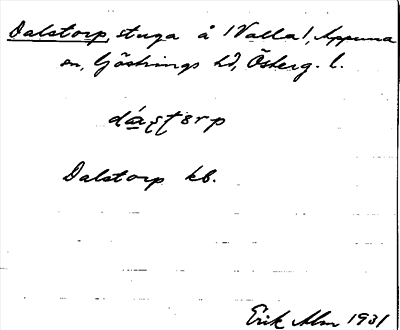 Dalstorp, stuga å /Valla/, Appuna
sn, Göstrings hd, Österg. l.
dáʂʈɛrp
Dalstorp kb.
Erik Alm 1931